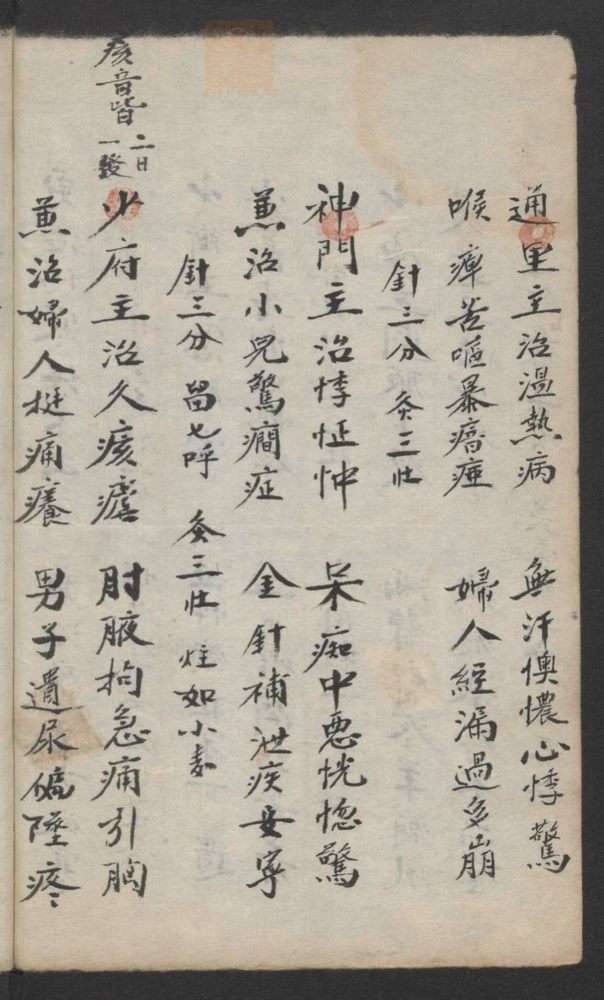 通里主治温熱病 無汗懊憹心悸驚
喉痺苦嘔暴瘖瘂 婦人經漏過多崩
針三分 灸三壯
神門主治悸怔忡 呆痴中惡恍惚驚
兼治小兒驚癇症 金針補泄疾安寧
針三分 畱七呼 灸三壯 炷如小麥
痎音皆 二日一發
少府主治久痎瘧 肘腋拘急痛引胸
兼治婦人挺痛癢 男子遺尿偏墜疼